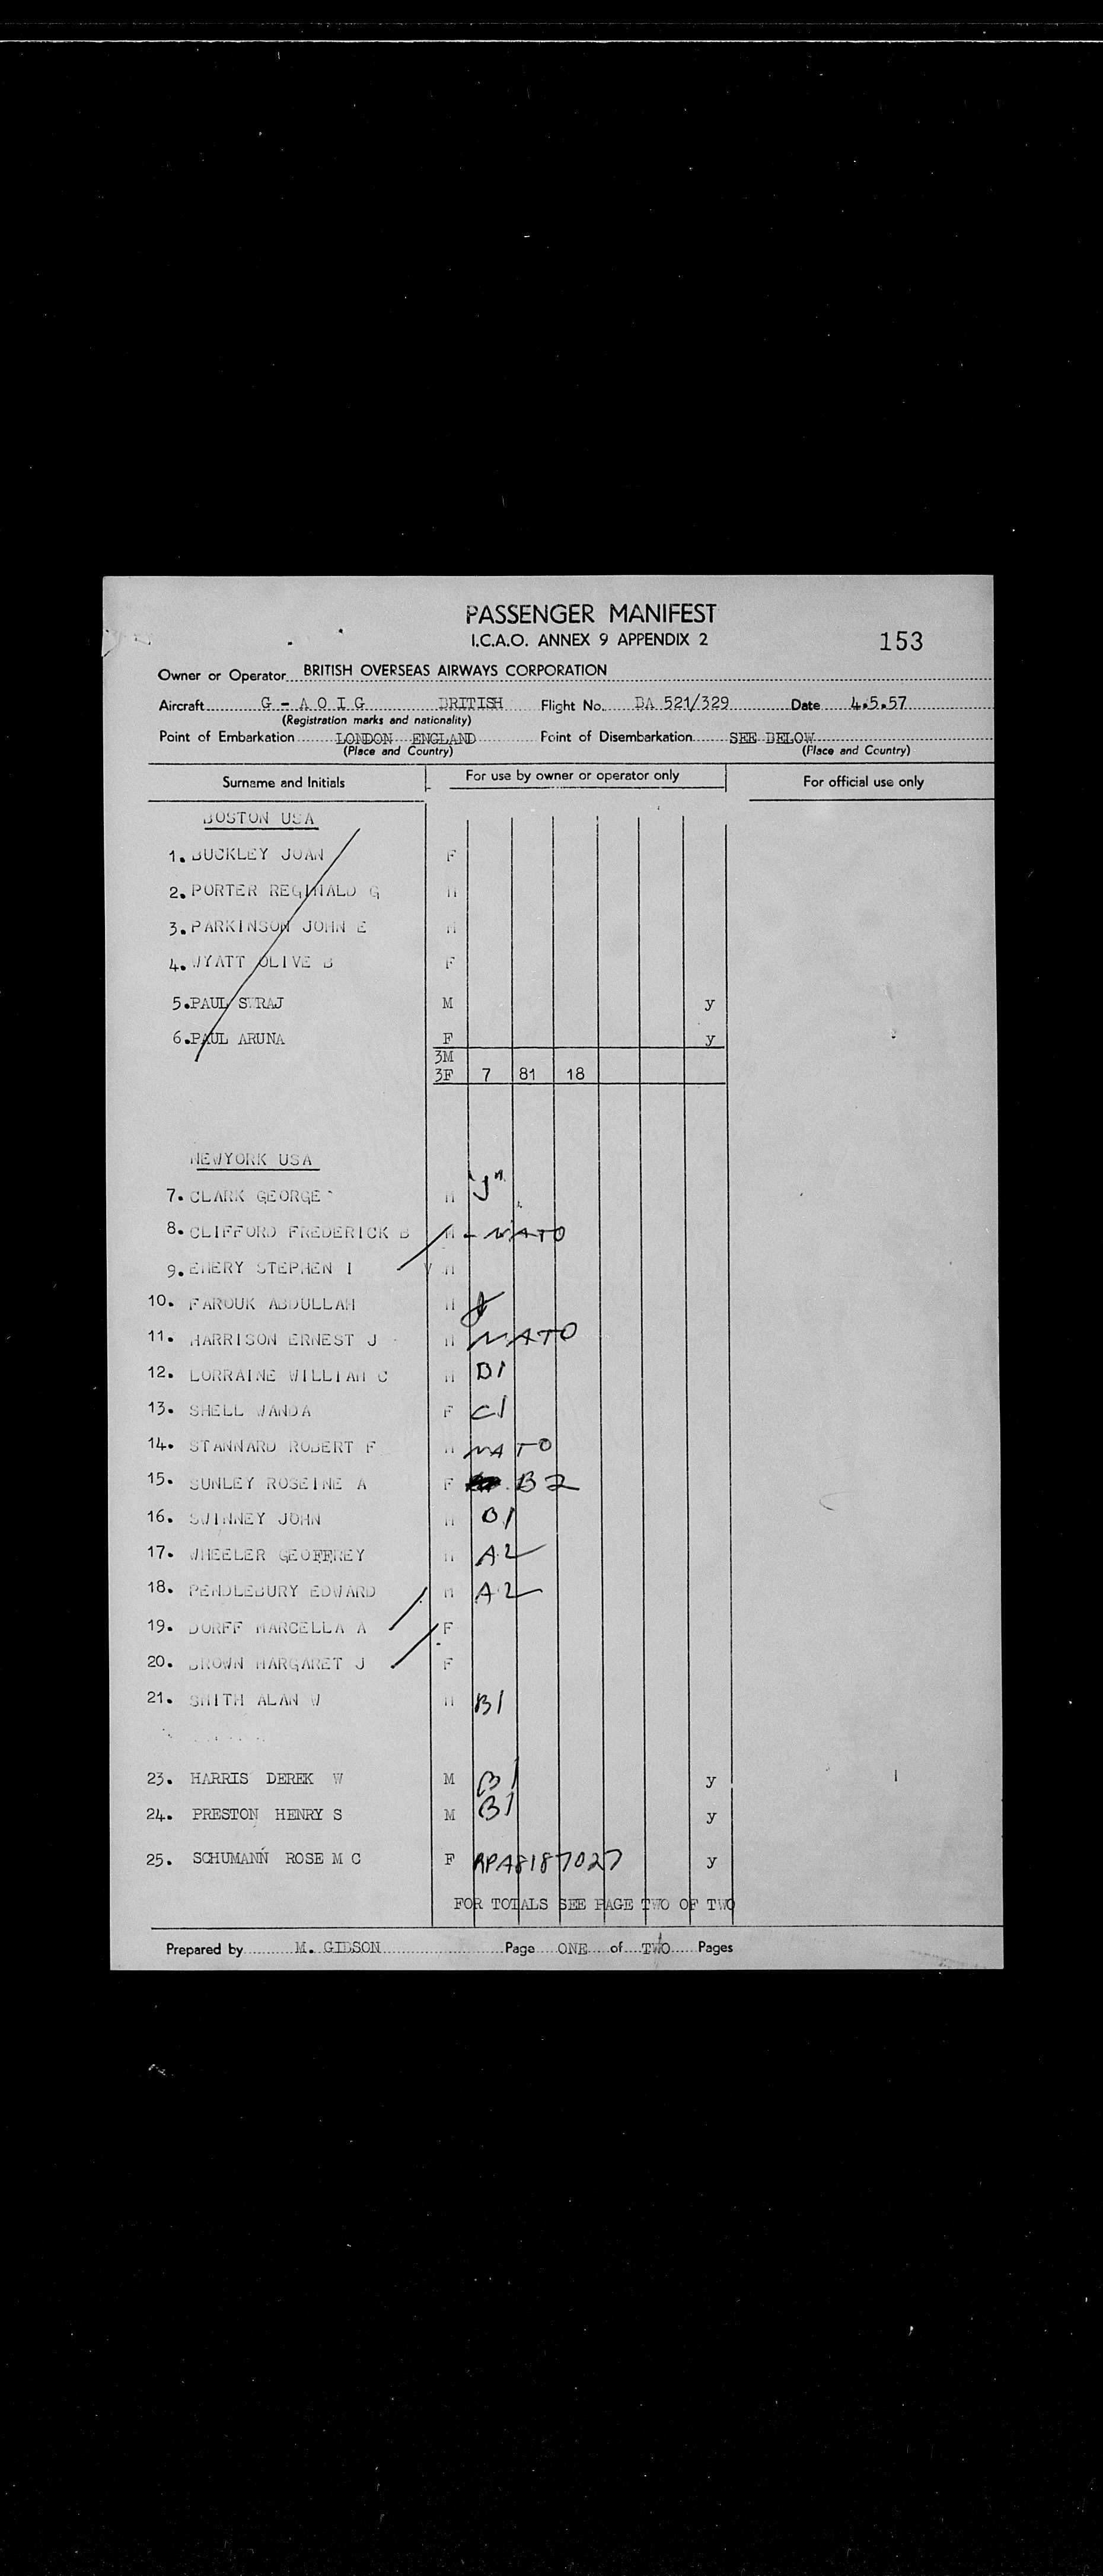 PASSENGER MANIFEST
I.C.A.O. ANNEX 9 APPENDIX 2
153
Owner or Operator BRITISH OVERSEAS AIRWAYS CORPORATION
Aircraft G - A O I G BRITISH Flight No. BA 521/329 Date 4.5.57
(Registration marks and nationality)
Point of Embarkation LONDON ENGLAND Point of Disembarkation SEE BELOW
(Place and Country) (Place and Country)
Surname and Initials For use by owner or operator only For official use only
BOSTON USA
1. BUCKLEY JOAN F
2. PORTER REGINALD G M
3. PARKINSON JOHN E M
4. WYATT OLIVE B F
5. PAUL S RAJ M y
6. PAUL ARUNA F y
3M
3F 7 81 18
NEWYORK USA
7. CLARK GEORGE M "J"
8. CLIFFORD FREDERICK B M - NATO
9. EMERY STEPHEN I M
10. FAROUK ABDULLAH M
11. HARRISON ERNEST J M NATO
12. LORRAINE WILLIAM C M B1
13. SHELL WANDA F C1
14. STANNARD ROBERT F M NATO
15. SUNLEY ROSEINE A F B2
16. SWINNEY JOHN M B1
17. WHEELER GEOFFREY M A2
18. PENDLEBURY EDWARD M A2
19. DORFF MARCELLA A F
20. BROWN MARGARET J F
21. SMITH ALAN W M B1
23. HARRIS DEREK W M B1 y
24. PRESTON HENRY S M B1 y
25. SCHUMANN ROSE M C F RPA8187027 y
FOR TOTALS SEE PAGE TWO OF TWO
Prepared by M. GIBSON Page ONE of TWO Pages